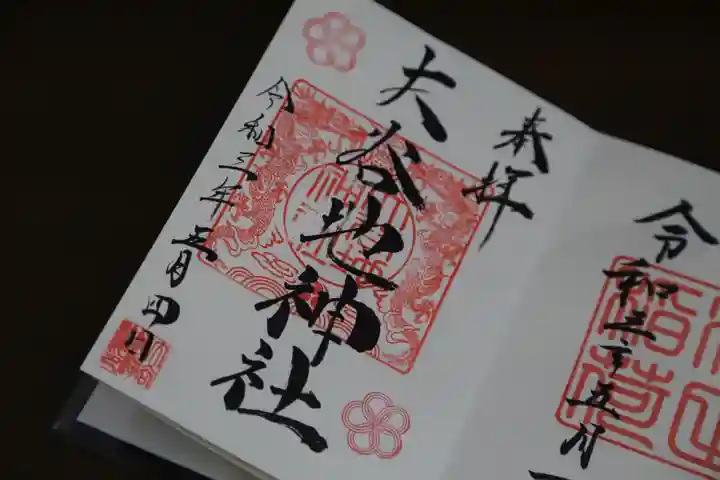 奉拝
大谷地神社
令和三年五月四日
令和三年五月
稲荷